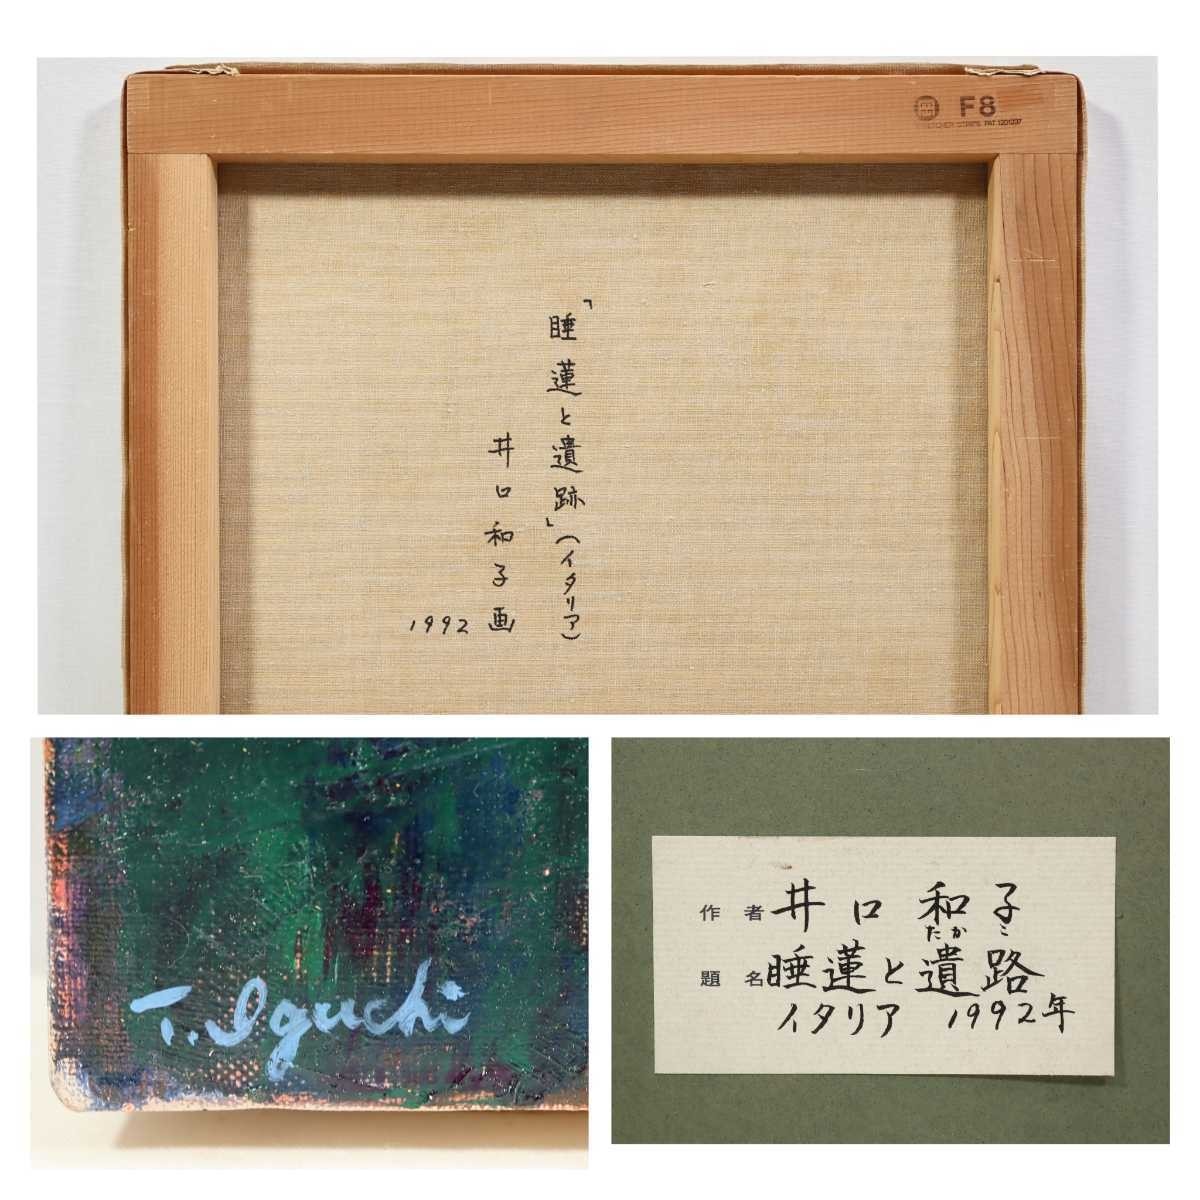 岡 F8
STRETCHER STRIPS PAT.1201237
「睡蓮と遺跡」(イタリア)
井口和子画
1992
T. Iguchi
作者 井口和子
たかこ
題名 睡蓮と遺路
イタリア 1992年